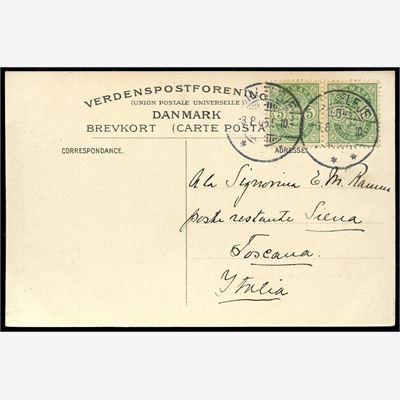 VERDENSPOSTFORENIN
(UNION POSTALE UNIVERSELLE)
DANMARK
BREVKORT (CARTE POSTA
CORRESPONDANCE.
ADRESSE:
A la Signorina E. M.
poste restante Siena
Toscana.
Italia